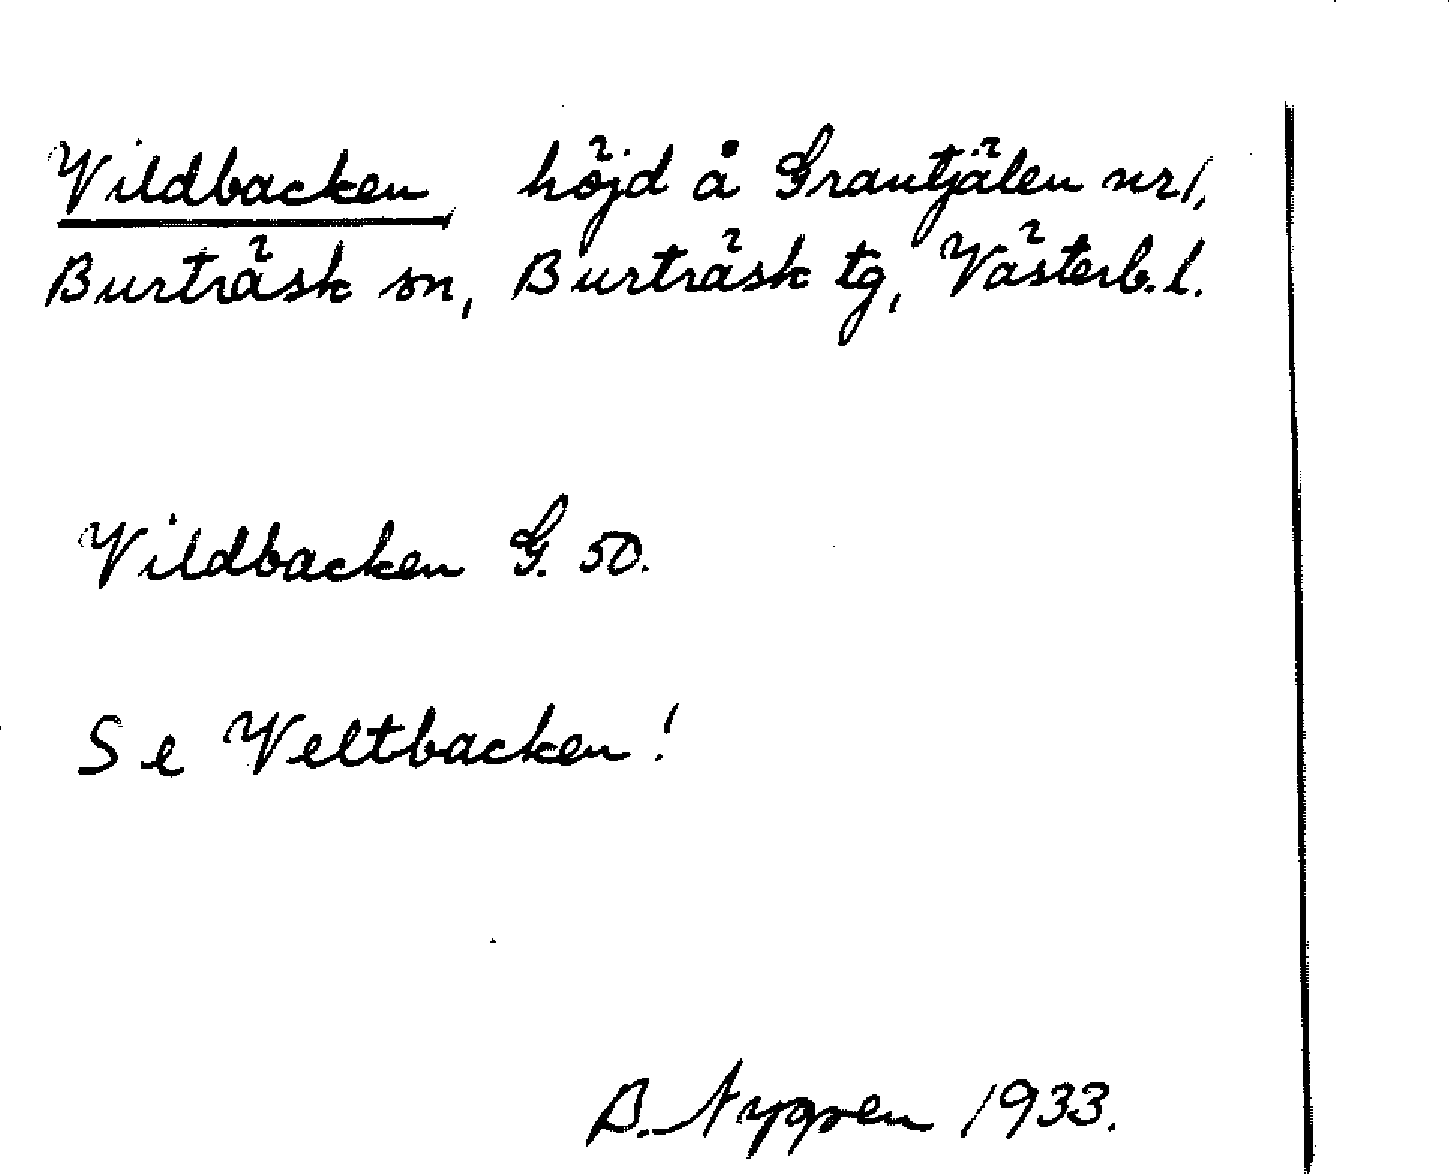 Vildbacken, höjd å Grantjälen nr 1,
Burträsk sn, Burträsk tg, Västerb. l.
Vildbacken G. 50.
Se Veltbacken!
B. Nygren 1933.